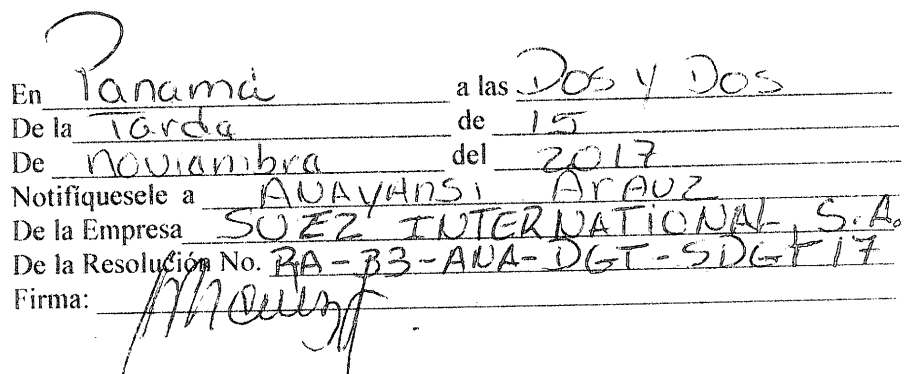 En Panamá a las Dos y Dos
De la Tarda de 15
De noviambra del 2017
Notifíquesele a ANAYANSI ArAUZ
De la Empresa SUEZ INTERNATIONAL, S.A.
De la Resolución No. RA-B3-ANA-DGT-SDGT 17
Firma: